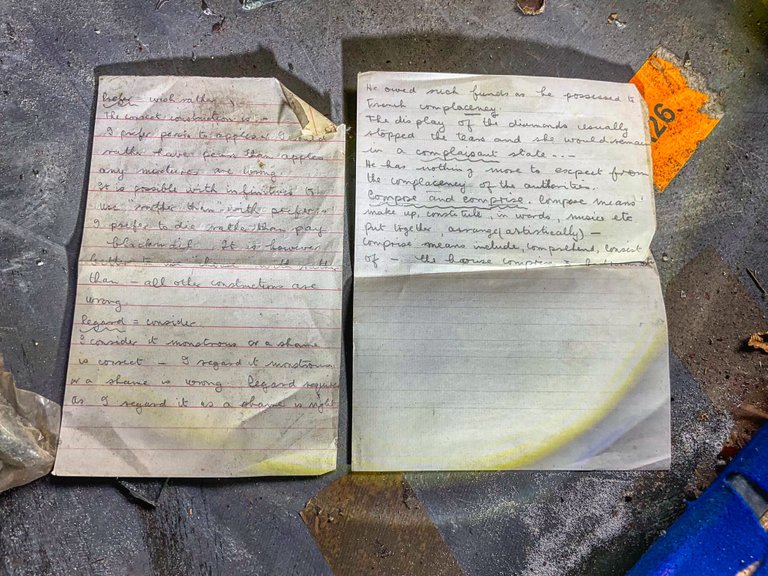 Prefer - wish rather
The correct construction is -
I prefer pears to apples or I would
rather have pears than apples
any mixtures are wrong.
It is possible with infinitives to
use rather than with prefer
I prefer to die rather than pay
blackmail. It is however
better to use
than - all other constructions are
wrong.
Regard = consider.
I consider it monstrous or a shame
is correct - I regard it monstrous
or a shame is wrong Regard requires
as I regard it as a shame is right
He owed such funds as he possessed to
French complacency.
The display of the diamonds usually
stopped the tears and she would remain
in a complaisant state - - -
He has nothing more to expect from
the complacency of the authorities.
Compose and comprise. Compose means
make up, constitute, in words, music etc
put together, arrange (artistically) -
comprise means include, comprehend, consist
of - the house comprises
26